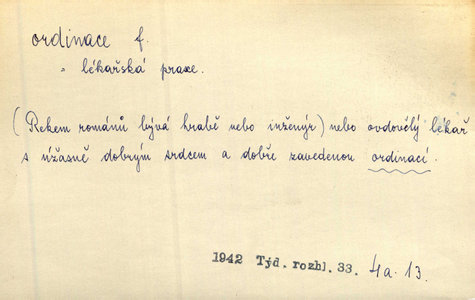 ordinace f.
„ lékařská praxe.
(Rekem románů bývá hrabě nebo inženýr) nebo ovdovělý lékař
s úžasně dobrým srdcem a dobře zavedenou ordinací.
1942 Týd. rozhl. 33. 4a.13.